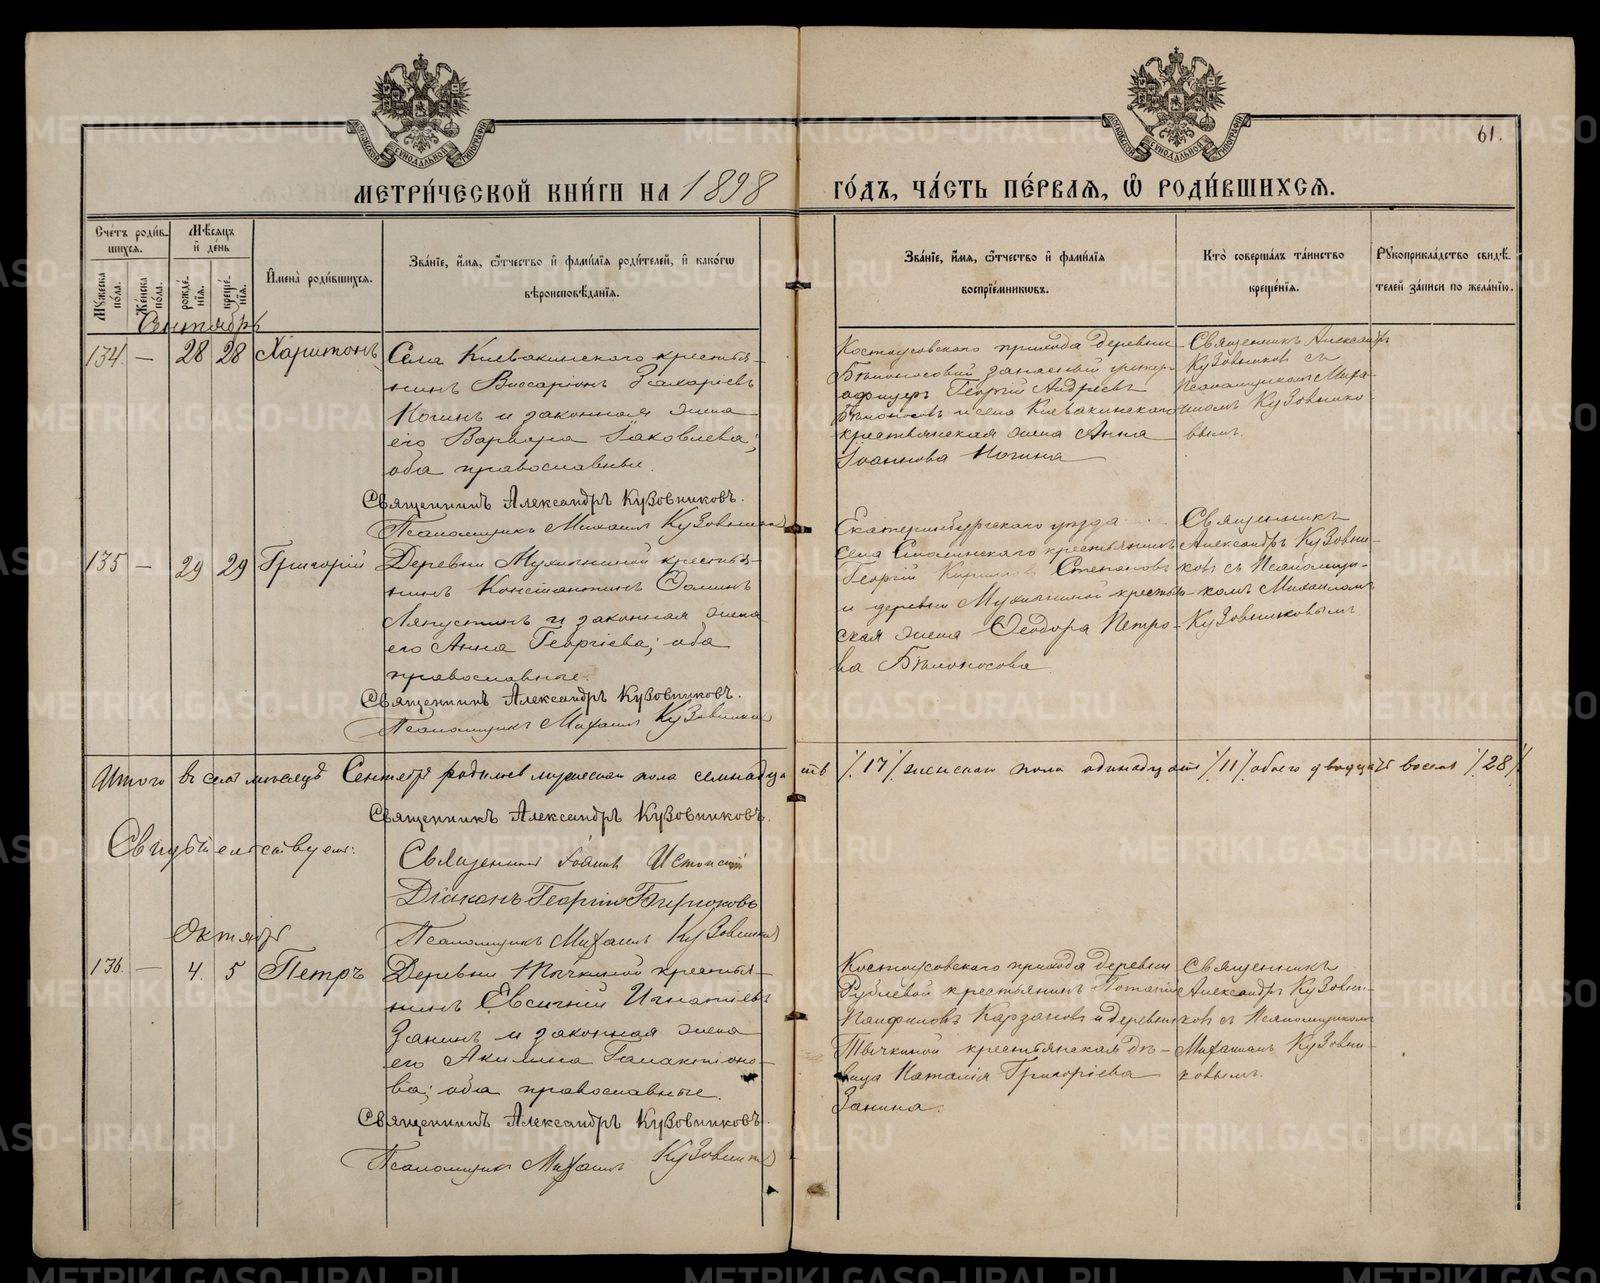 61.
МЕТРИ́ЧЕСКОЙ КНИ́ГИ НА 1898 ГО́ДЪ, ЧА́СТЬ ПЕ́РВАѦ, Ѽ РОДИ́ВШИХСѦ.
Сче́тъ роди́вшихсѧ.
Мꙋ́жеска по́ла.
Же́нска по́ла.
Мѣ́сѧцъ и҆ де́нь
рожде́нїѧ.
креще́нїѧ.
И҆мена̀ роди́вшихсѧ.
Зва́нїе, и҆́мѧ, ѻ҆́тчество и҆ фами́лїѧ роди́телей, и҆ како́гѡ
вѣроисповѣ́данїѧ.
Зва́нїе, и҆́мѧ, ѻ҆́тчество и҆ фами́лїѧ
воспрїе́мникѡвъ.
Кто̀ соверша́лъ та́инство
креще́нїѧ.
Рꙋкоприкла́дство свидѣ́телей за́писи по жела́нїю.
Сентябрь
134. — 28 28 Харитонъ
Села Киевакинскаго крестья-
нинъ Виссаріонъ Захаріевъ
Ногинъ и законная жена
его Варвара Іаковлева;
оба православные.
Священникъ Александръ Кузовниковъ.
Псаломщикъ Михаилъ Кузовников
Костоусовскаго прихода деревни
Бѣлоносовой запасный унтеръ
офицеръ Георгій Андреевъ
Бѣлоносовъ и села Киевакинскаго
крестьянская жена Анна
Іоаннова Ногина
Священникъ Александръ
Кузовниковъ съ
Псаломщикомъ Миха-
иломъ Кузовнико-
вымъ.
135 — 29 29 Григорій
Деревни Мухлыниной крестья-
нинъ Константинъ Ѳоминъ
Ляпустинъ и законная жена
его Анна Георгіева; оба
православные.
Священникъ Александръ Кузовниковъ.
Псаломщикъ Михаилъ Кузовников
Екатеринбургскаго уѣзда
села Смолинскаго крестьянинъ
Георгій Кириловъ Степановъ
и деревни Мухлыниной крестьян-
ская жена Ѳеодора Петро-
ва Бѣлоносова
Священникъ
Александръ Кузовни-
ковъ съ Псаломщи-
комъ Михаиломъ
Кузовниковымъ.
Итого въ семъ мѣсяцѣ Сентябрѣ родилось мужескаго пола семнадцать /17/ женскаго пола одинадцать /11/ обоего двадцать восемь /28/
Священникъ Александръ Кузовниковъ.
Свидѣтельствуемъ:
Священникъ Іоаннъ
Діаконъ Георгій Бирюковъ
Псаломщикъ Михаилъ Кузовников
Октябрь
136. — 4 5 Петръ
Деревни Тычкиной крестья-
нинъ Евсигній Игнатіевъ
Занинъ и законная жена
его Акилина Галактіоно-
ва; оба православные.
Священникъ Александръ Кузовниковъ.
Псаломщикъ Михаилъ Кузовников
Костоусовскаго прихода деревни
Рублевой крестьянинъ Потапій
Панфиловъ Карзановъ и деревни
Тычкиной крестьянская дѣ-
вица Наталія Григоріева
Занина.
Священникъ
Александръ Кузовни-
ковъ съ Псаломщикомъ
Михаиломъ Кузовни-
ковымъ.
METRIKI.GASO-URAL.RU